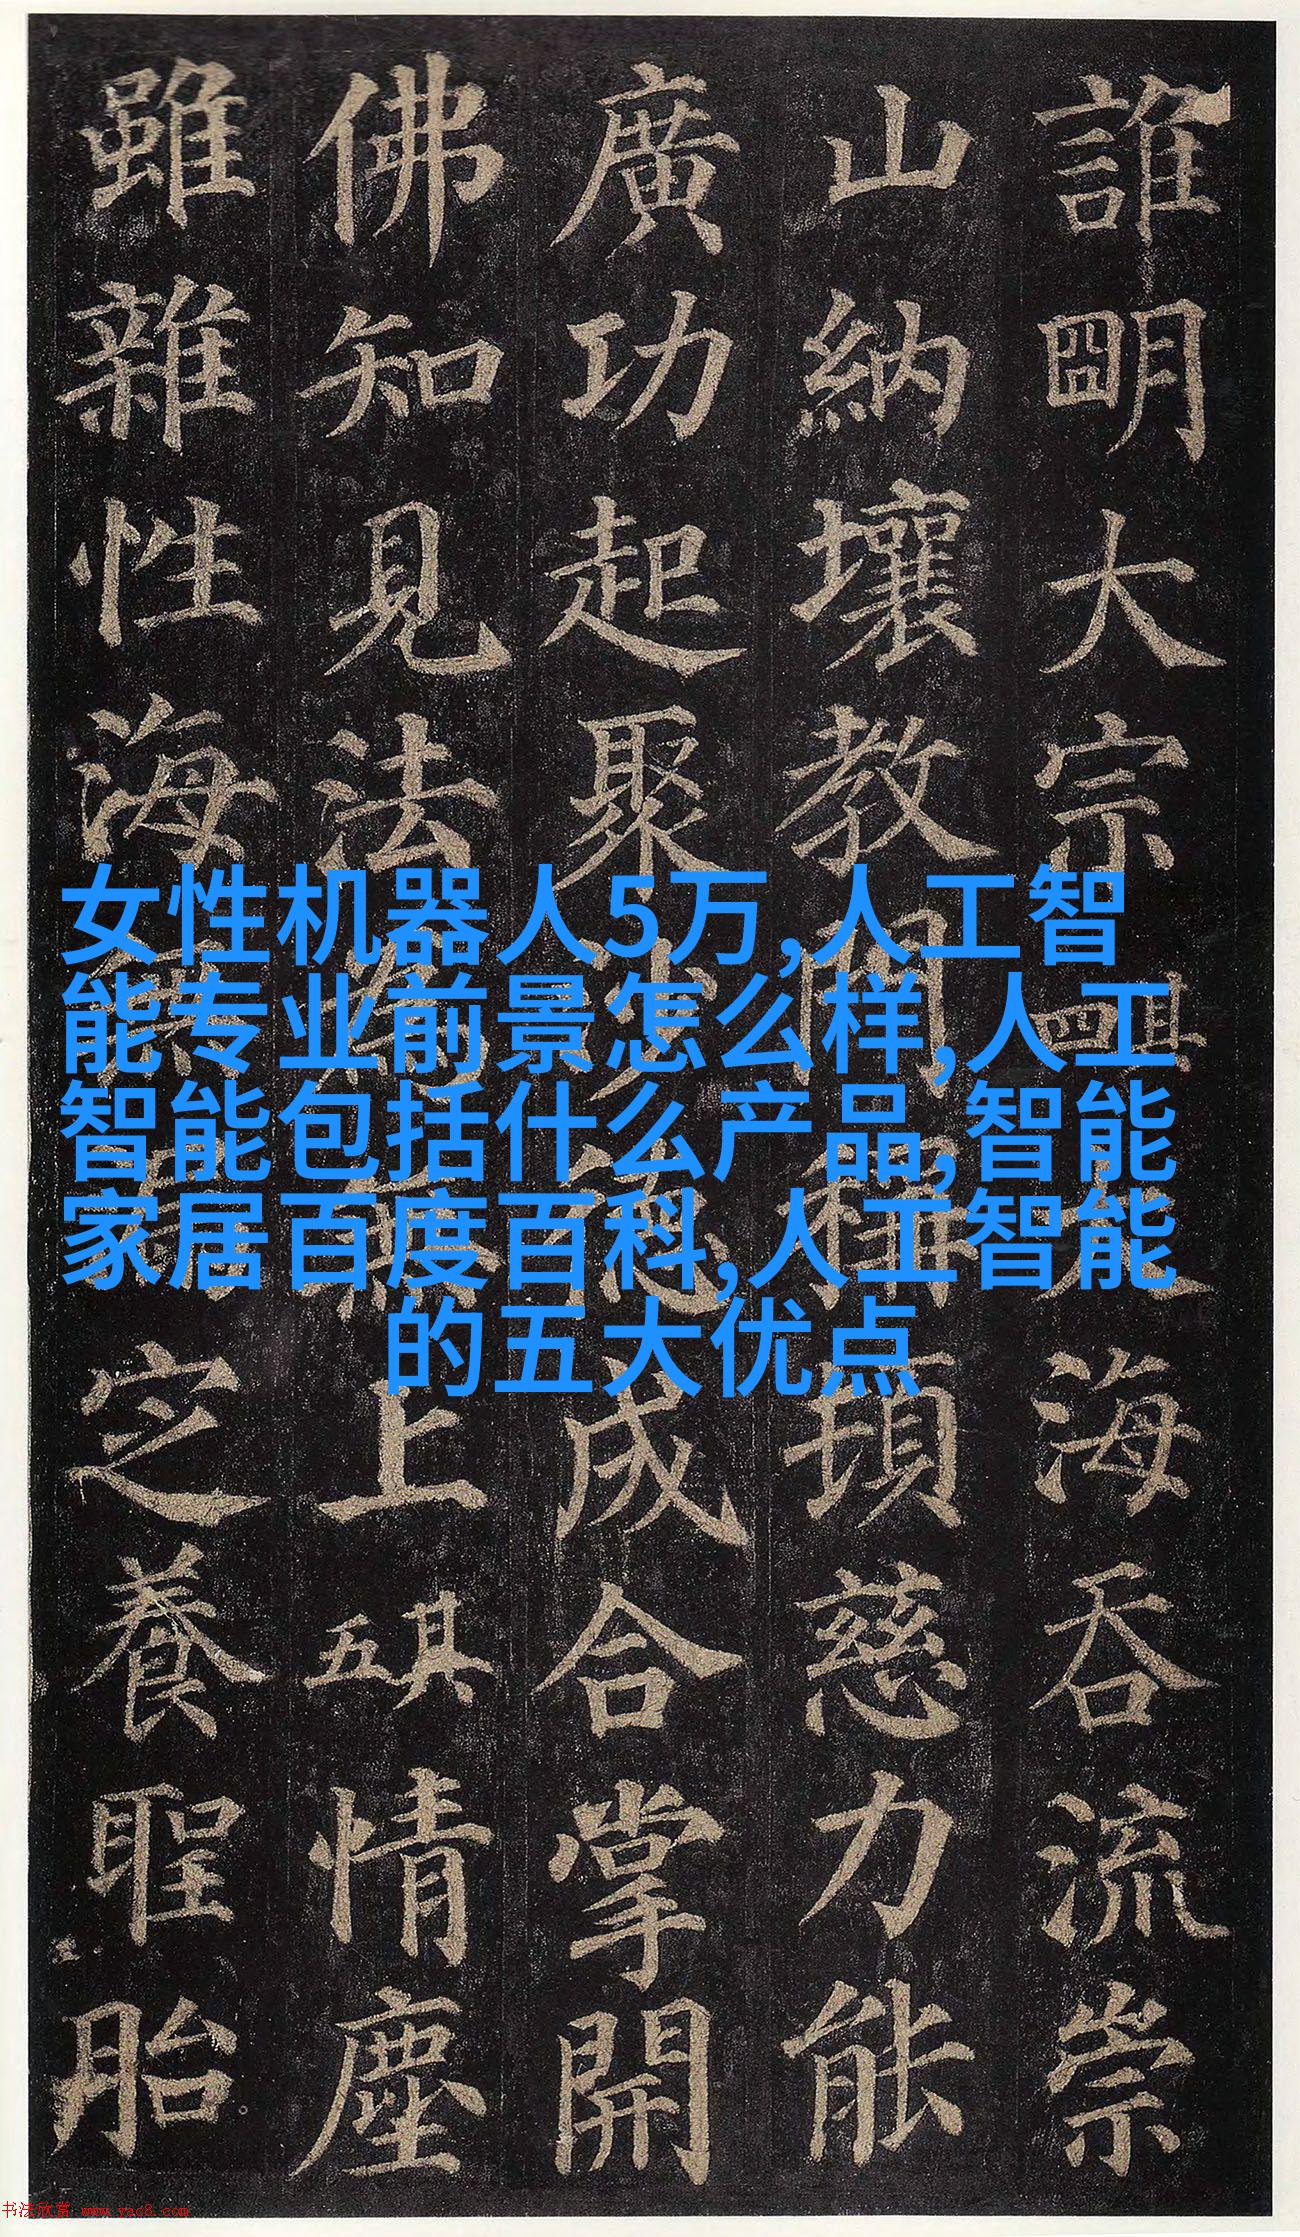 誰明大宗其四大海吞流崇
山納壤教門稱頓慈力能
廣功起聚沙德成合掌開
佛知見法為無上其五情塵
雖雜性海定養聖胎
女性机器人5万,人工智
能专业前景怎么样,人工
智能包括什么产品,智能
家居百度百科,人工智能
的五大优点
书法欣赏 www.yac8.com